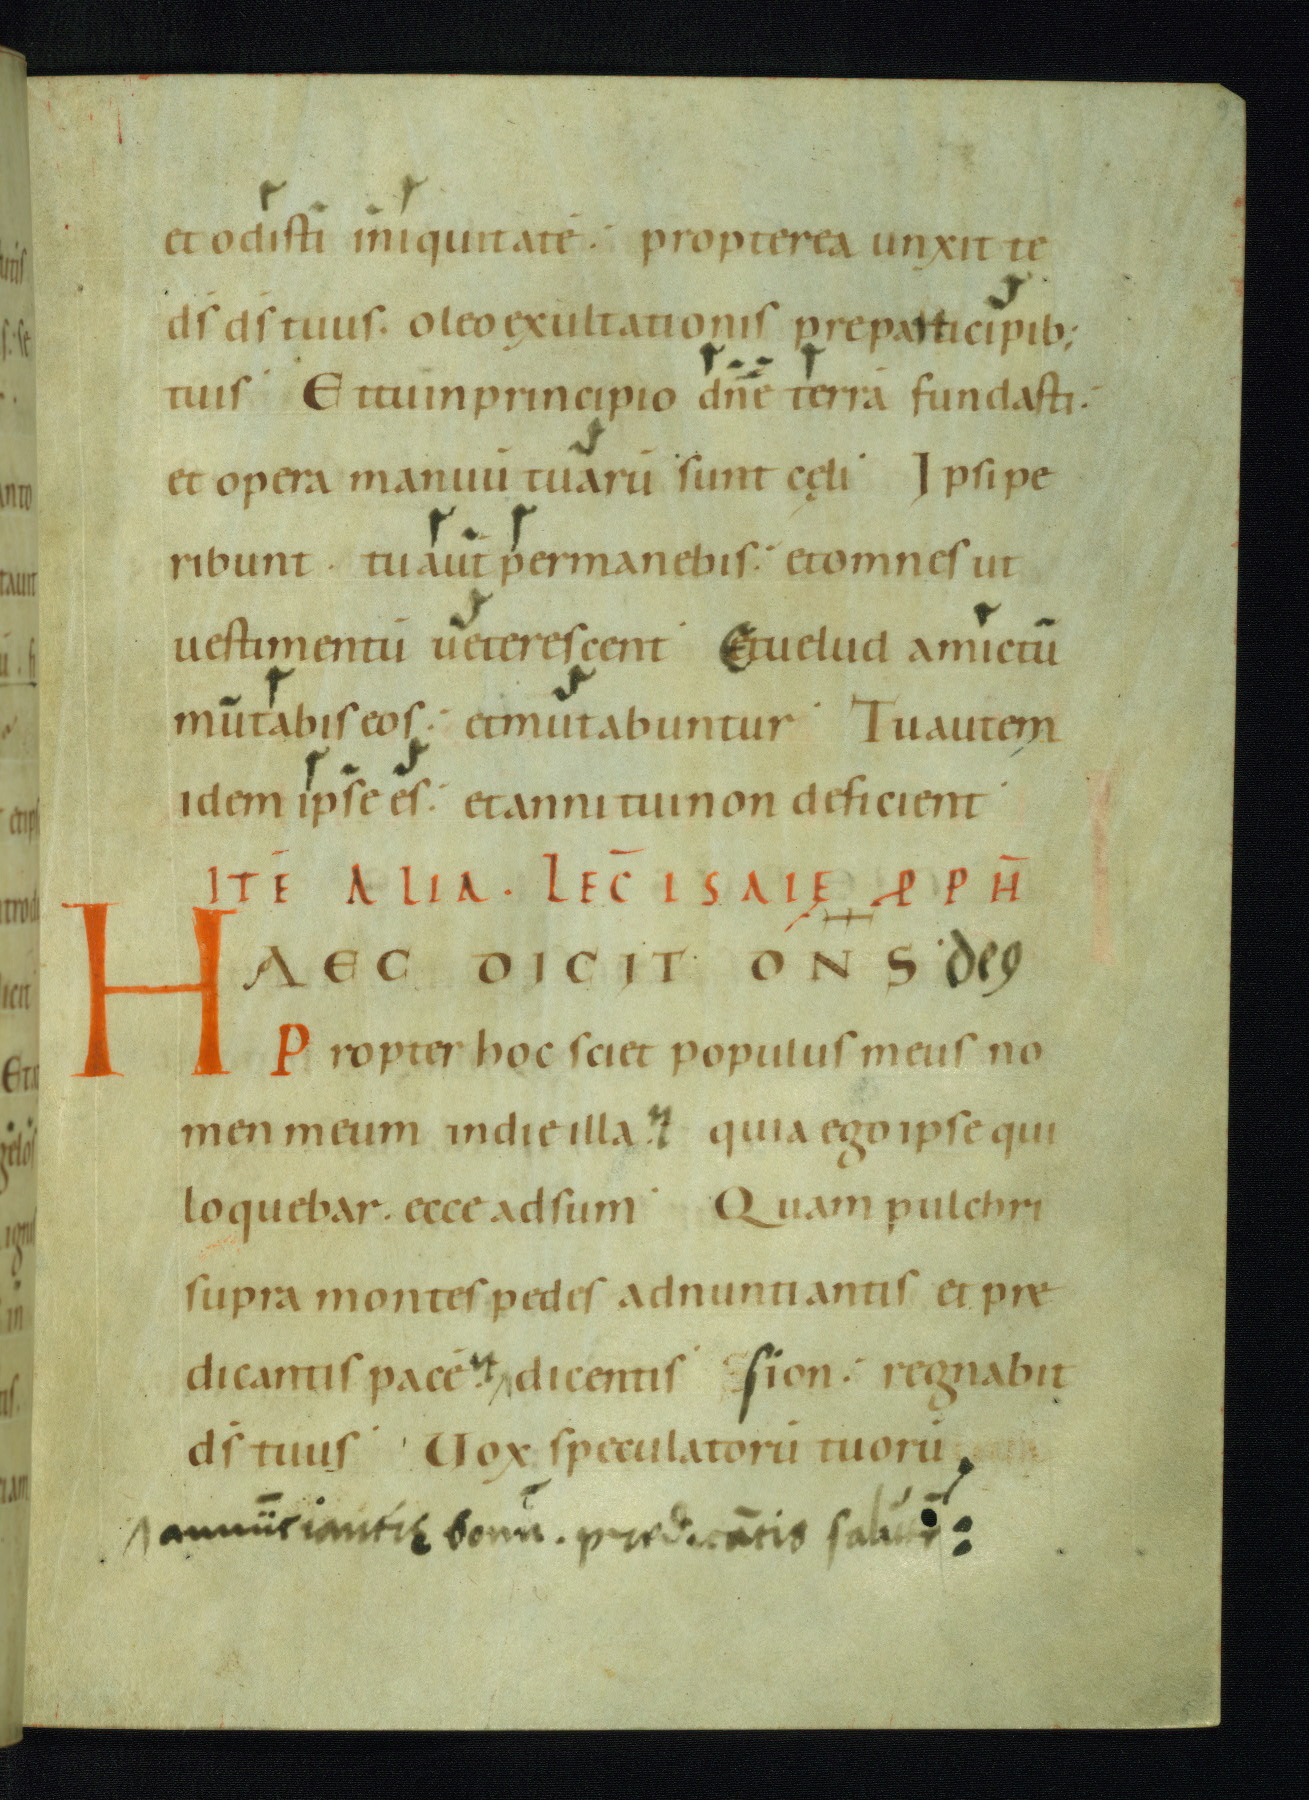 et odisti iniquitatē. propterea unxit te
d̄s d̄s tuus. oleo exultationis pre participib;
tuis Et tu in principio dn̄e terrā fundasti.
et opera manuū tuarū sunt cęli Ipsi pe
ribunt. tu aūt permanebis. et omnes ut
uestimentū ueterescent Et uelud amictū
mutabis eos. et mutabuntur Tu autem
idem ipse es. et anni tui non deficient
ITĒ ALIA. LEC̄ ISAIĘ PPH̄
HAEC DICIT DN̄S deꝰ
Propter hoc sciet populus meus no
men meum in die illa. quia ego ipse qui
loquebar. ecce adsum Quam pulchri
supra montes pedes adnuntiantis et pre
dicantis pacē. dicentis sion. regnabit
d̄s tuus Uox speculatorū tuorū
annūciantis bonū. predicātis salutē